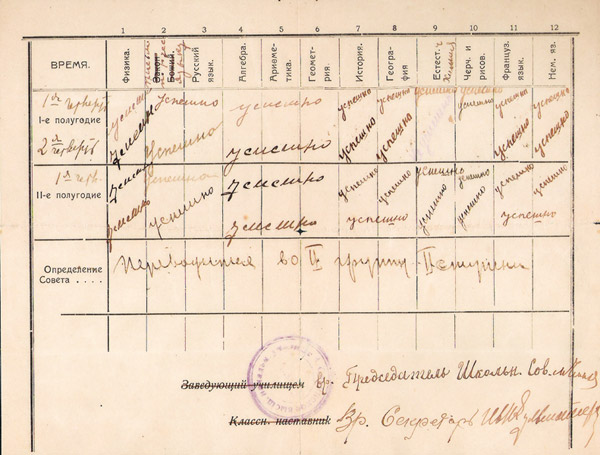 1 2 3 4 5 6 7 8 9 10 11 12
ВРЕМЯ. Физика. Закон Божий. Русский язык. Алгебра. Арифметика. Геометрия История. География Естест. Черч. и рисов. Француз. язык. Нем. яз.
1ая четверть успешно Успешно успешно успешно успешно успешно успешно успешно успешно
I-е полугодие
2ая четверть успешно успешно успешно успешно успешно успешно успешно
1ая четв. успешно успешно успешно успешно успешно успешно успешно успешно успешно
II-е полугодие
успешно успешно успешно успешно успешно успешно успешно успешно
Определение Совета . . . . Переводится во II группу II ступени
Заведующий училищем вр. Председатель Школьн. Сов.
Классн. наставник Вр. Секретарь